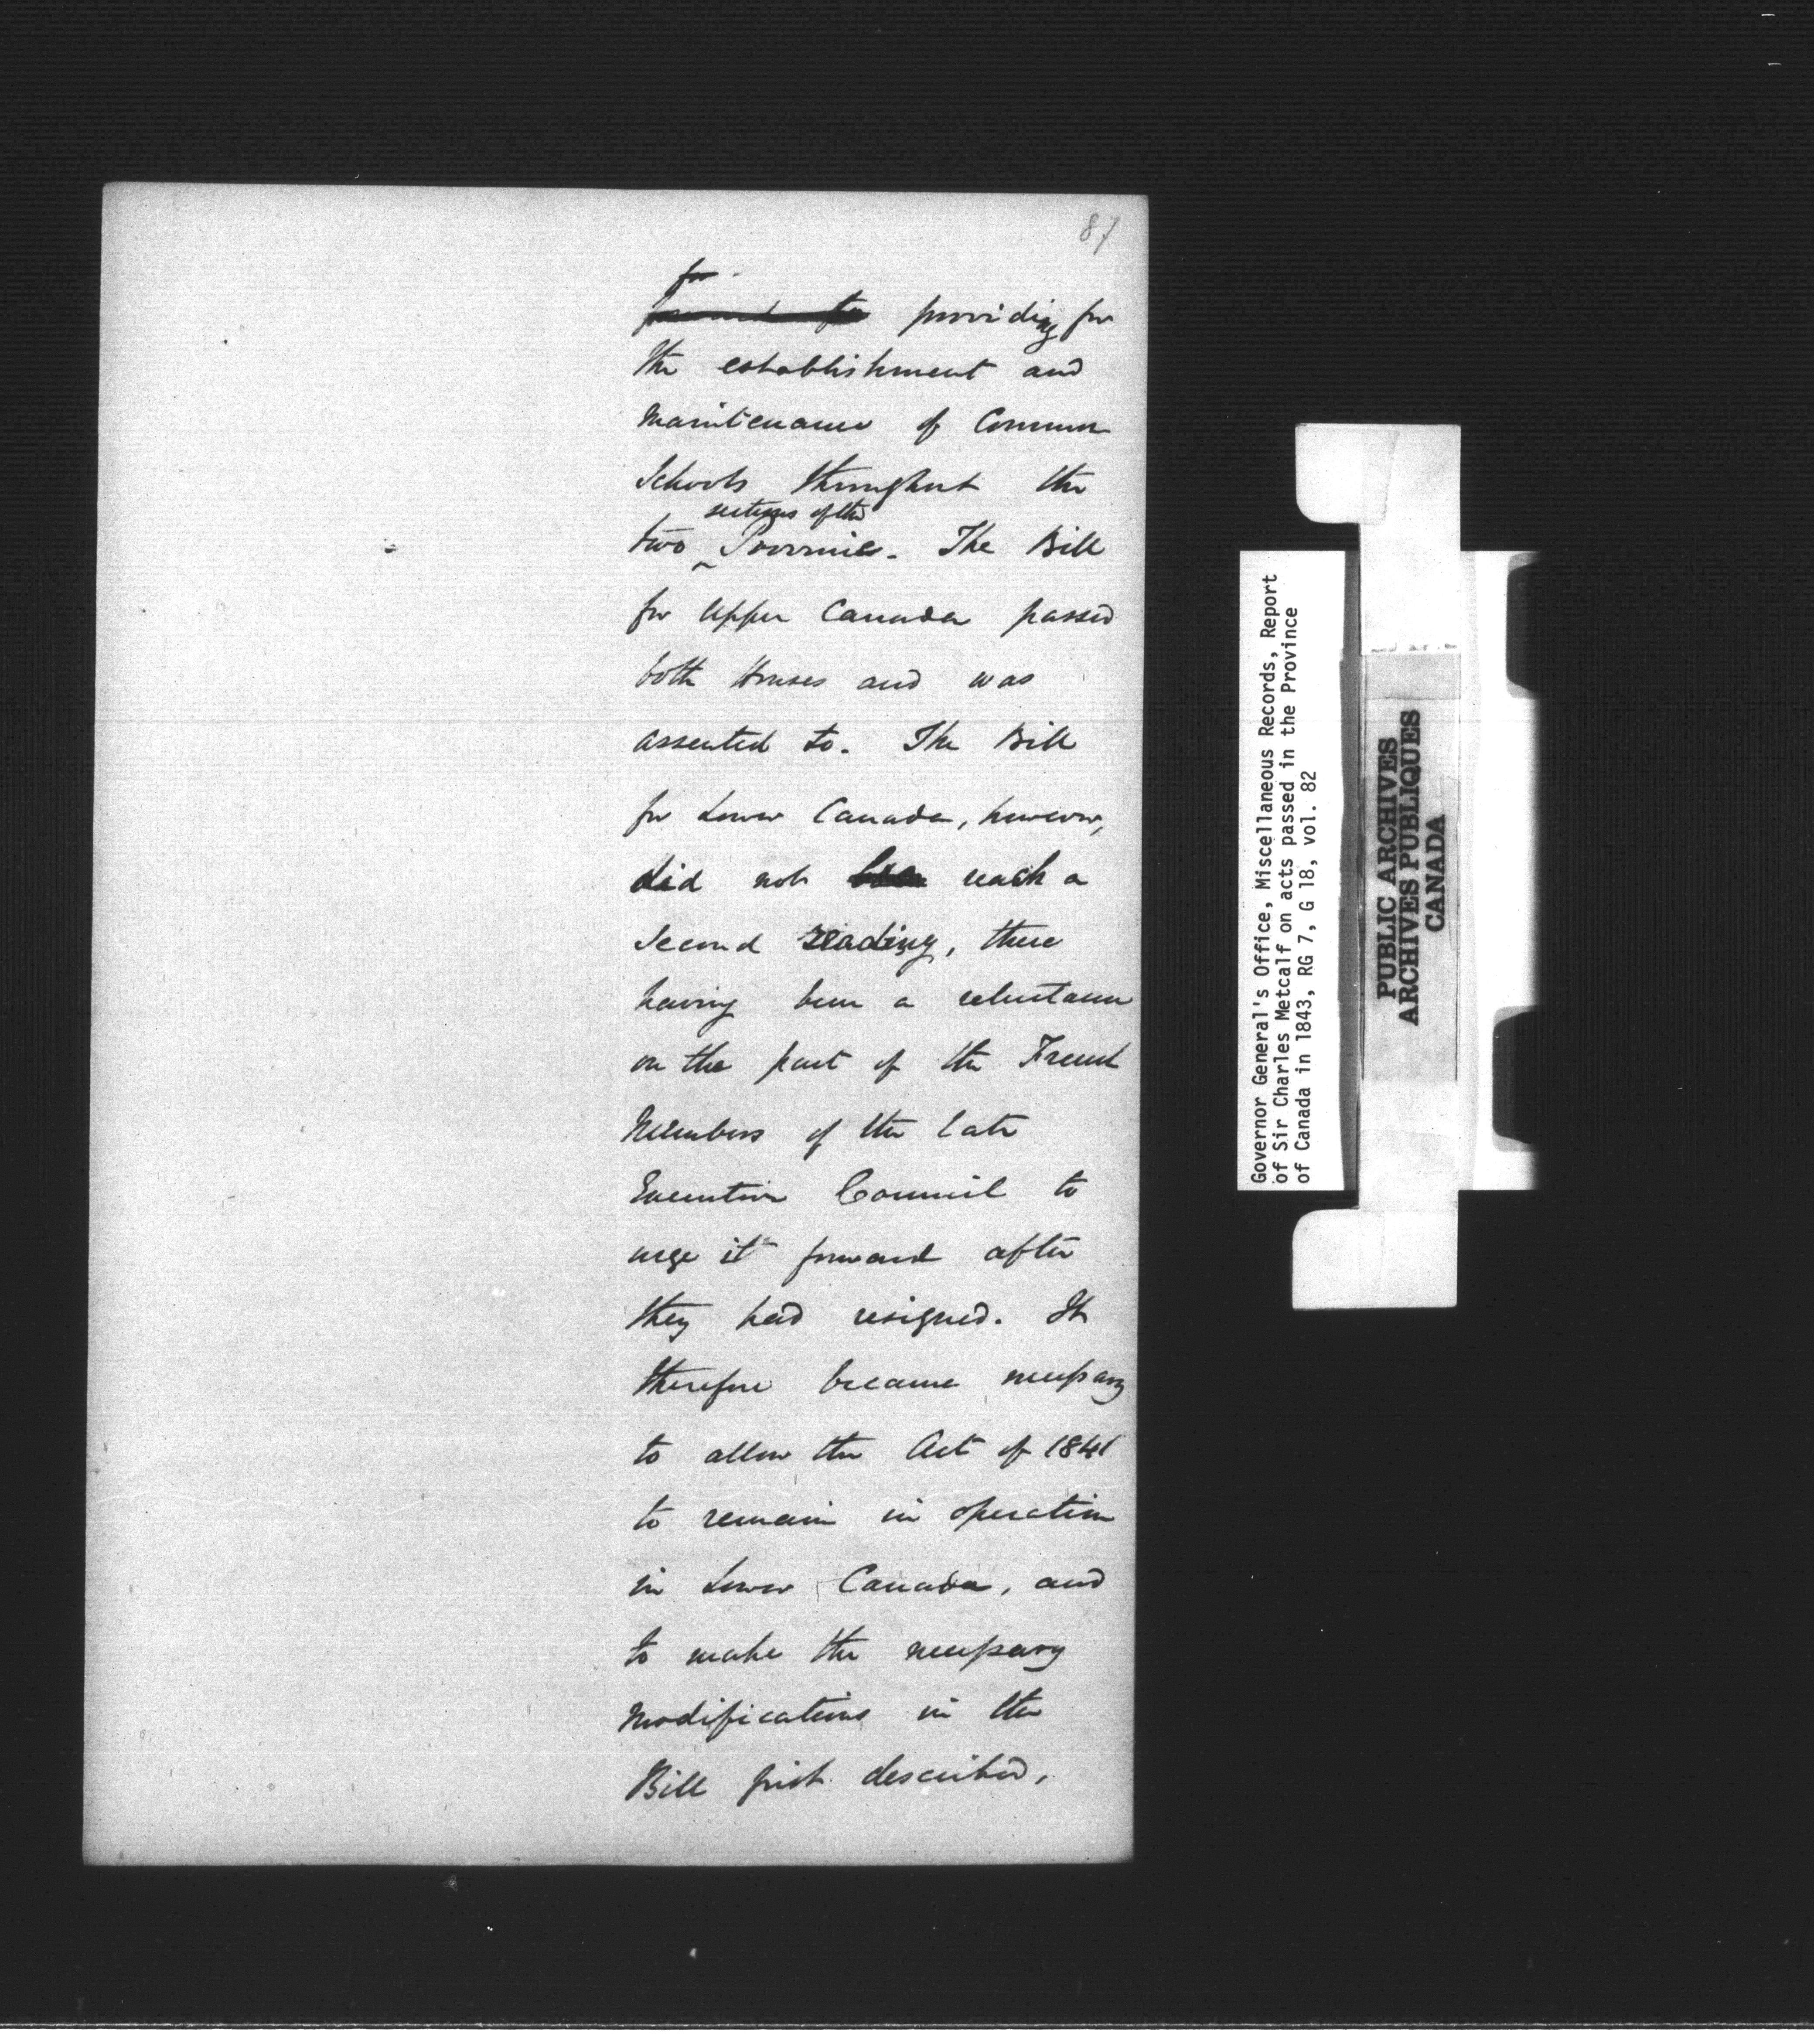 87
for
providing for
the establishment and
Maintenance of Common
Schools throughout the
sections of the
two Province. The Bill
for Upper Canada passed
both Houses and was
assented to. The Bill
for Lower Canada, however,
did not reach a
Second reading, there
having been a reluctance
on the part of the French
Members of the late
Executive Council to
urge it forward after
they had resigned. It
therefore became necessary
to allow the Act of 1841
to remain in operation
in Lower Canada, and
to make the necessary
Modifications in the
Bill first described,
Governor General's Office, Miscellaneous Records, Report
of Sir Charles Metcalf on acts passed in the Province
of Canada in 1843, RG 7, G 18, vol. 82
PUBLIC ARCHIVES
ARCHIVES PUBLIQUES
CANADA